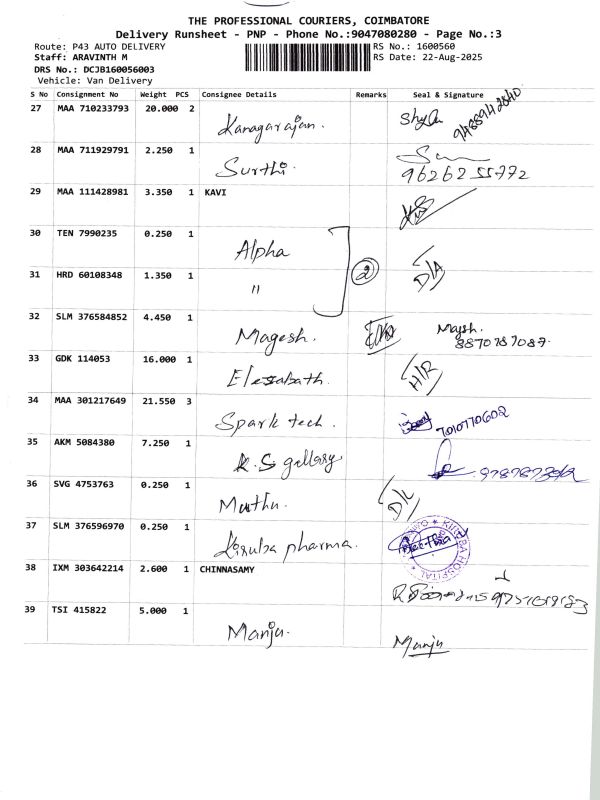 THE PROFESSIONAL COURIERS, COIMBATORE
Delivery Runsheet - PNP - Phone No.:9047080280 - Page No.:3
Route: P43 AUTO DELIVERY RS No.: 1600560
Staff: ARAVINTH M RS Date: 22-Aug-2025
DRS No.: DCJB160056003
Vehicle: Van Delivery
S No Consignment No Weight PCS Consignee Details Remarks Seal & Signature
27 MAA 710233793 20.000 2 Kanagarajan.
28 MAA 711929791 2.250 1 Surthi.
9626255772
29 MAA 111428981 3.350 1 KAVI
30 TEN 7990235 0.250 1 Alpha
2 D/A
31 HRD 60108348 1.350 1 "
32 SLM 376584852 4.450 1 Magesh.
8870787087.
33 GDK 114053 16.000 1 H/R
34 MAA 301217649 21.550 3 Spark tech. 7010770602
35 AKM 5084380 7.250 1 K.S gallary
36 SVG 4753763 0.250 1 Muthu. D/L
37 SLM 376596970 0.250 1 pharma.
HOSPITAL
38 IXM 303642214 2.600 1 CHINNASAMY
39 TSI 415822 5.000 1 Manju. Manju